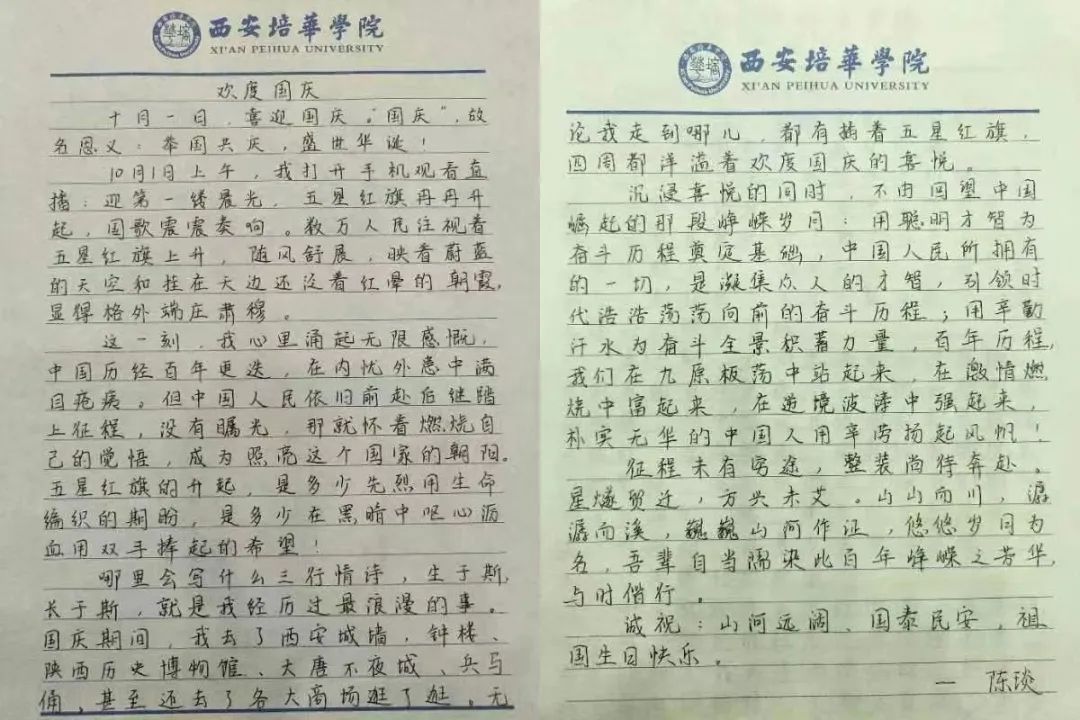 西安培華學院
XI'AN PEIHUA UNIVERSITY
欢度国庆
十月一日，喜迎国庆。“国庆”，故
名思义：举国共庆，盛世华诞！
10月1日上午，我打开手机观看直
播：迎第一缕晨光，五星红旗冉冉升
起，国歌震震奏响。数万人民注视着
五星红旗上升，随风舒展，映着蔚蓝
的天空和挂在天边还泛着红晕的朝霞，
显得格外端庄肃穆。
这一刻，我心里涌起无限感慨，
中国历经百年更迭，在内忧外患中满
目疮痍。但中国人民依旧前赴后继踏
上征程，没有曙光，那就怀着燃烧自
己的觉悟，成为照亮这个国家的朝阳。
五星红旗的升起，是多少先烈用生命
编织的期盼，是多少在黑暗中呕心沥
血用双手捧起的希望！
哪里会写什么三行情诗，生于斯，
长于斯，就是我经历过最浪漫的事。
国庆期间，我去了西安城墙，钟楼、
陕西历史博物馆、大唐不夜城、兵马
俑，甚至还去了各大商场逛了逛。无
西安培華學院
XI'AN PEIHUA UNIVERSITY
论我走到哪儿，都有插着五星红旗，
四周都洋溢着欢度国庆的喜悦。
沉浸喜悦的同时，不由回望中国
崛起的那段峥嵘岁月：用聪明才智为
奋斗历程奠定基础，中国人民所拥有
的一切，是凝集众人的才智，引领时
代浩浩荡荡向前的奋斗历程；用辛勤
汗水为奋斗全景积蓄力量，百年历程，
我们在九原板荡中站起来，在激情燃
烧中富起来，在逆境波涛中强起来，
朴实无华的中国人用辛劳扬起风帆！
征程未有穷途，整装尚待奔赴。
星燧贸迁，方兴未艾。山山而川，潺
潺而溪，巍巍山河作证，悠悠岁月为
名，吾辈自当隔染此百年峥嵘之芳华，
与时偕行。
诚祝：山河远阔、国泰民安，祖
国生日快乐。
— 陈琰